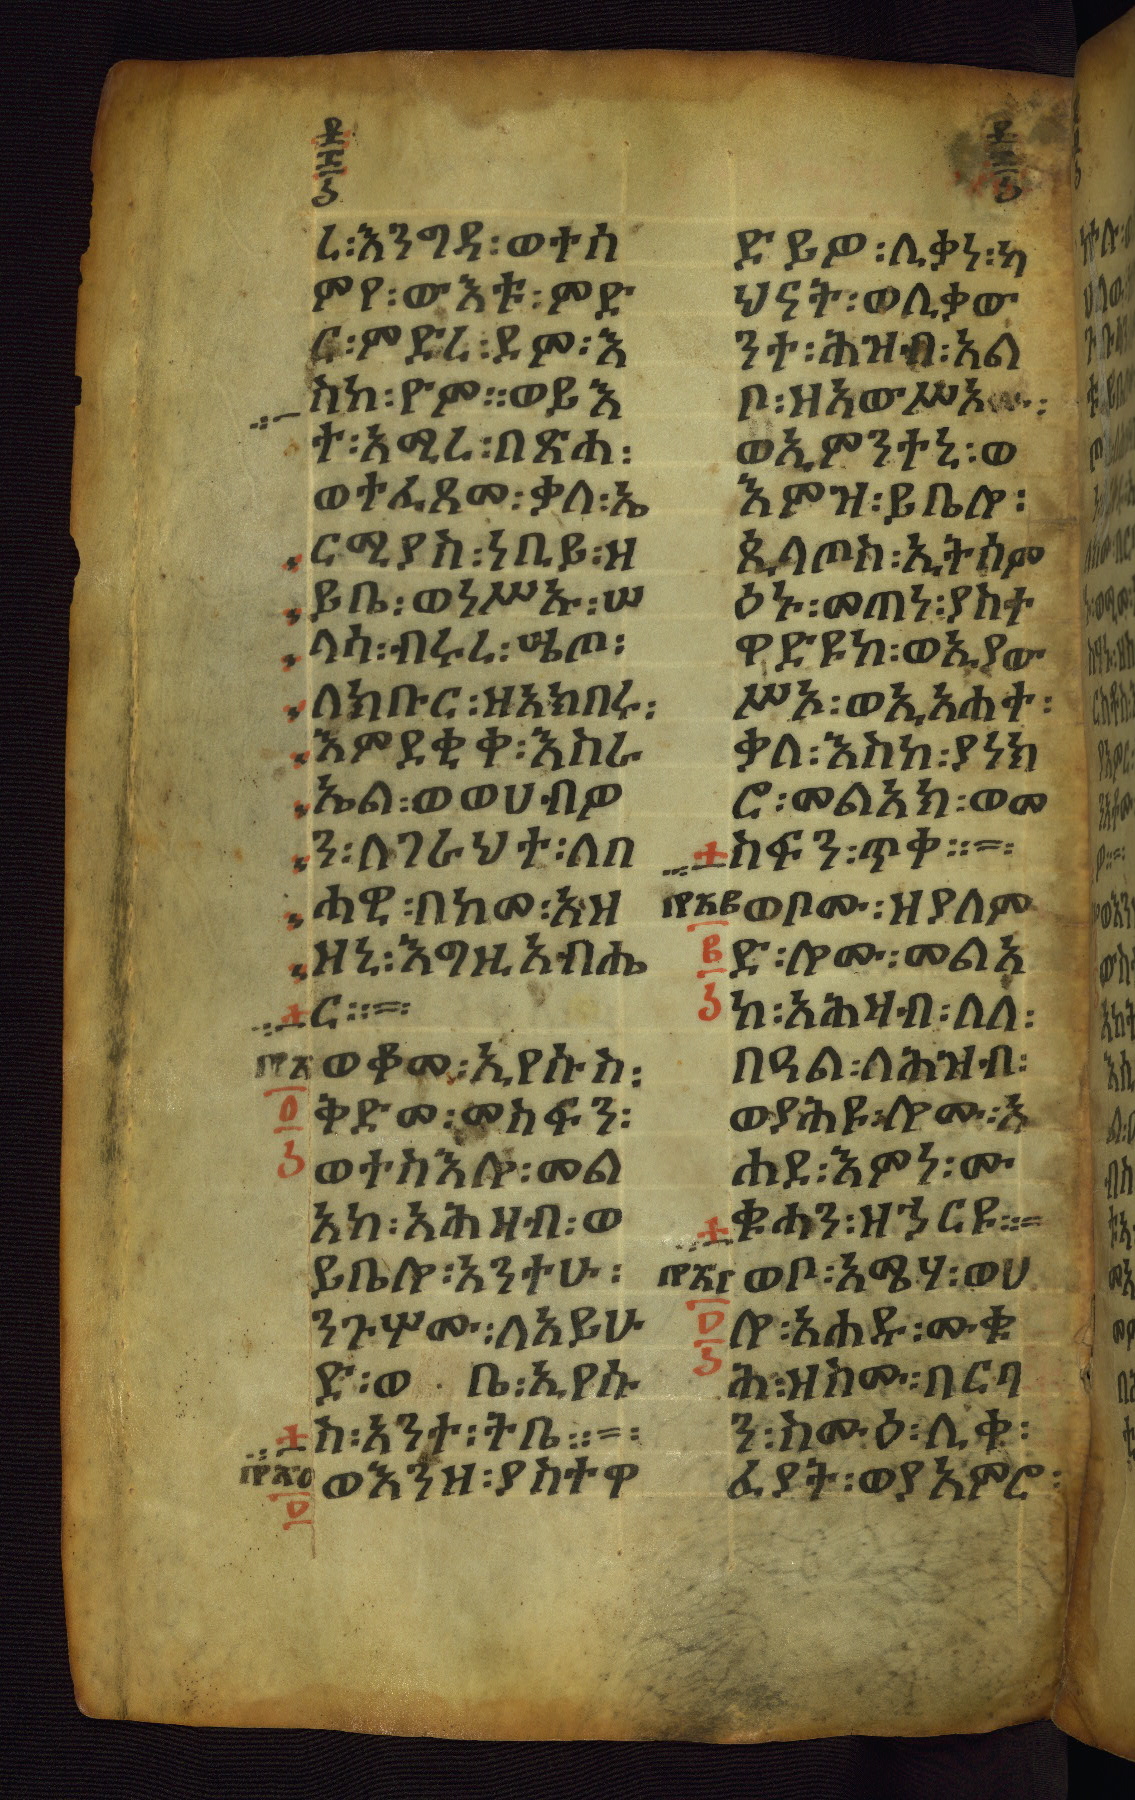 ረ፡እንግዳ፡ወተሰ
ምየ፡ውእቱ፡ምድ
ር፡ምድረ፡ደም፡እ
ስከ፡ዮም፡፡ወይእ
ተ፡አሚረ፡በጽሐ፡
ወተፈጸመ፡ቃለ፡ኤ
ርሚያስ፡ነቢይ፡ዘ
ይቤ፡ወነሥኡ፡ሠ
ላሳ፡ብሩረ፡ሤጦ፡
ለክቡር፡ዘአክበሩ፡
እምደቂቀ፡እስራ
ኤል፡ወወሀብዎ
ን፡ለገራህተ፡ለብ
ሐዊ፡በከመ፡አዘ
ዘኒ፡እግዚአብሔ
ር፡፡=፡
ወቆመ፡ኢየሱስ፡
ቅድመ፡መስፍን፡
ወተስእሎ፡መል
አከ፡አሕዛብ፡ወ
ይቤሎ፡አንተሁ፡
ንጉሦሙ፡ለአይሁ
ድ፡ወ ቤ፡ኢየሱ
ስ፡አንተ፡ትቤ፡፡=፡
ወእንዘ፡ያስተዋ
ድይዎ፡ሊቃነ፡ካ
ህናት፡ወሊቃው
ንተ፡ሕዝብ፡አል
ቦ፡ዘአውሥአ
ወኢምንተኒ፡ወ
እምዝ፡ይቤሎ፡
ጲላጦስ፡ኢትሰም
ዕኑ፡መጠነ፡ያስተ
ዋድዩከ፡ወኢያው
ሥአ፡ወኢአሐተ፡
ቃለ፡እስከ፡ያነክ
ሮ፡መልአክ፡ወመ
ስፍን፡ጥቀ፡፡=፡
ወቦሙ፡ዘያለም
ድ፡ሎሙ፡መልአ
ከ፡አሕዛብ፡በለ፡
በዓል፡ለሕዝብ፡
ወያሕዩ፡ሎሙ፡አ
ሐደ፡እምነ፡ሙ
ቁሓን፡ዘኀርዩ፡፡=
ወቦ፡አሜሃ፡ወሀ
ሎ፡አሐዱ፡ሙቁ
ሕ፡ዘስሙ፡በርባ
ን፡ስሙዕ፡ሊቀ፡
ፈያት፡ወያአምሮ፡